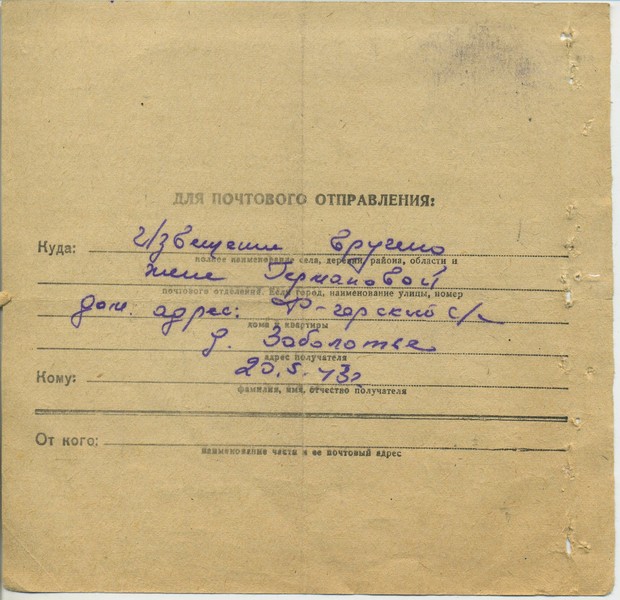 ДЛЯ ПОЧТОВОГО ОТПРАВЛЕНИЯ:
Куда: Извещение вручено
полное наименование села, деревни, района, области и
жене Германовой
почтового отделения. Если город, наименование улицы, номер
дом. адрес: Ф-горский с/с
дома и квартиры
д. Заболотье
адрес получателя
Кому: 20.5.43г
фамилия, имя, отчество получателя
От кого:
наименование части и ее почтовый адрес